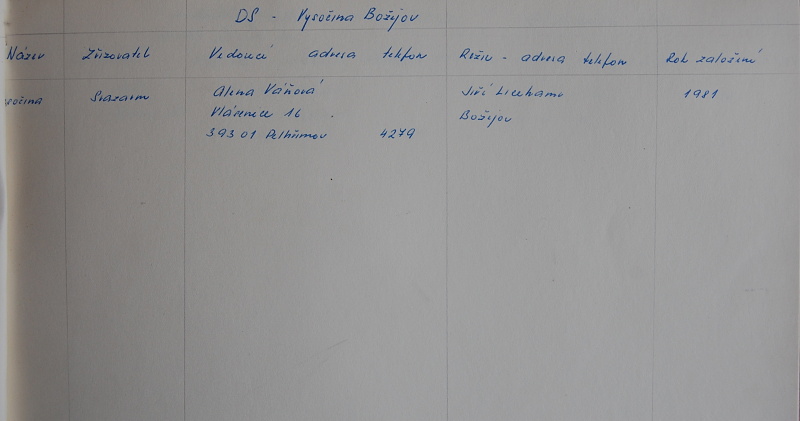 DS - Vysočina Božejov
Název Zřizovatel Vedoucí adresa telefon Režie - adresa telefon Rok založení
Svazarm Alena Váňová Jiří 1981
Vlásenice 16 Božejov
393 01 Pelhřimov 4279